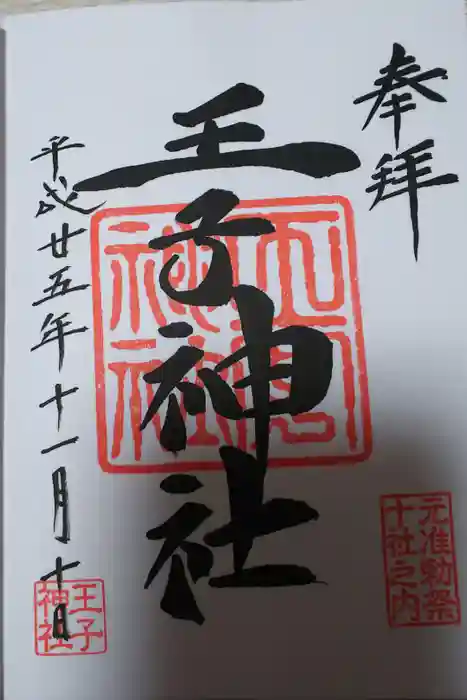 奉拝
王子神社
平成廿五年十一月十日
王子神社
元准勅祭
十社之内
王子
神社